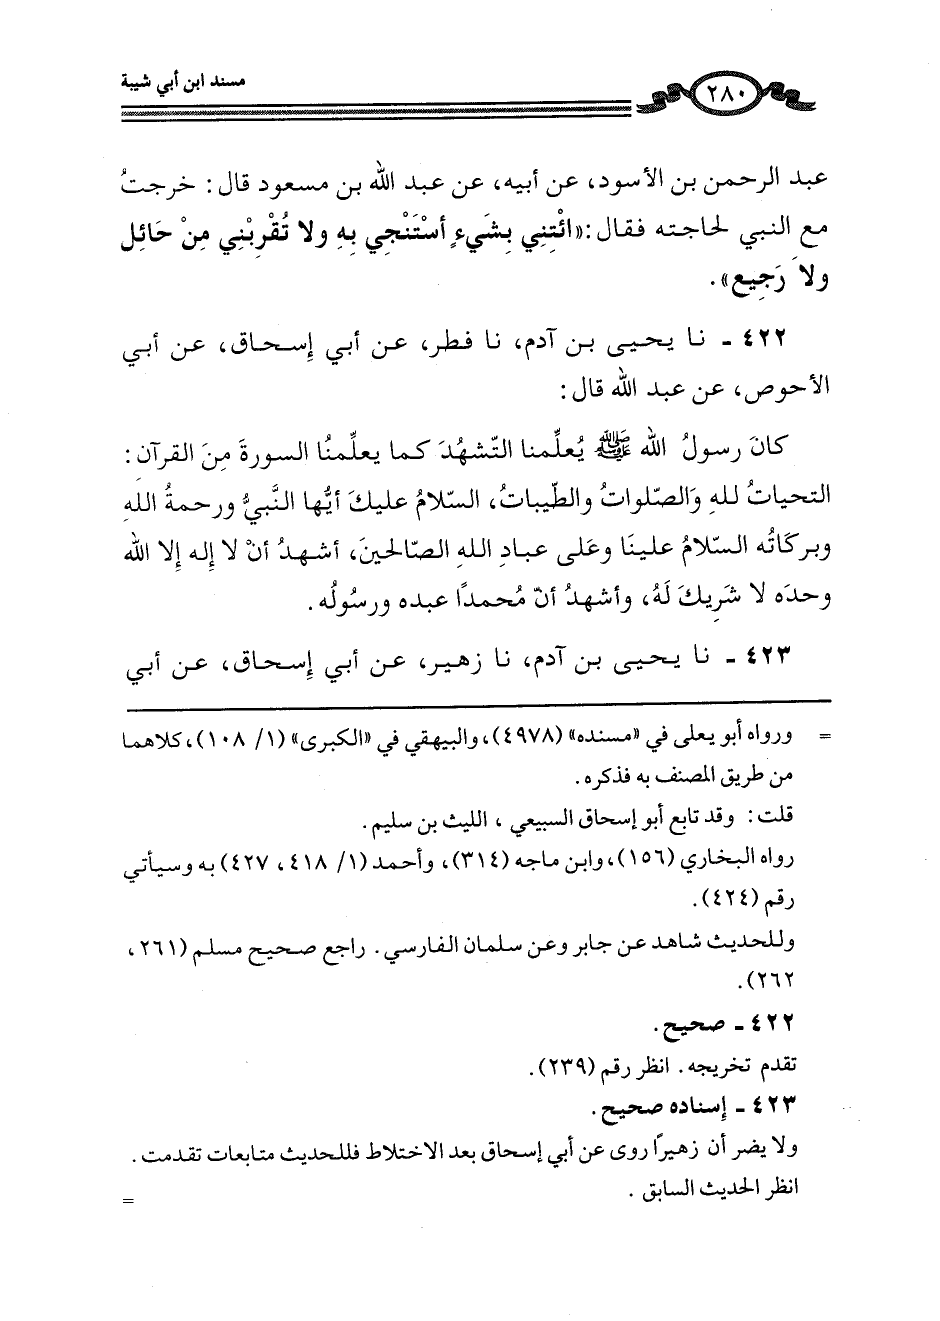 مسند ابن أبي شيبة
٢٨٠
عبد الرحمن بن الأسود، عن أبيه، عن عبد الله بن مسعود قال: خرجتُ
مع النبي لحاجته فقال: «ائْتِني بشَيءٍ أسْتَنْجي بِهِ ولا تُقْرِبْني مِنْ حَائِل
ولاَ رَجِيع».
٤٢٢ ـ نا يحيى بن آدم، نا فطر، عن أبي إسحاق، عن أبي
الأحوص، عن عبد الله قال:
كانَ رسولُ الله ﷺ يُعلِّمنا التّشهُدَ كما يعلِّمنُا السورةَ مِنَ القرآن:
التحياتُ للهِ وَالصّلواتُ والطّيباتُ، السّلامُ عليكَ أيُّها النَّبيُّ ورحمةُ اللهِ
وبركَاتُه السّلامُ علينَا وعَلى عبادِ اللهِ الصّالحينَ، أشهدُ أنْ لا إله إلا الله
وحدَه لا شَرِيكَ لَهُ، وأشهدُ أنّ مُحمداً عبده ورسُولُه.
٤٢٣ ـ نا يحيى بن آدم، نا زهير، عن أبي إسحاق، عن أبي
= ورواه أبو يعلى في «مسنده» (٤٩٧٨)، والبيهقي في «الكبرى» (١/ ١٠٨)، كلاهما
من طريق المصنف به فذكره.
قلت: وقد تابع أبو إسحاق السبيعي، الليث بن سليم.
رواه البخاري (١٥٦)، وابن ماجه (٣١٤)، وأحمد (١/ ٤١٨، ٤٢٧) به وسيأتي
رقم (٤٢٤).
وللحديث شاهد عن جابر وعن سلمان الفارسي. راجع صحيح مسلم (٢٦١،
٢٦٢).
٤٢٢ ـ صحيح.
تقدم تخريجه. انظر رقم (٢٣٩).
٤٢٣ ـ إسناده صحيح.
ولا يضر أن زهيراً روى عن أبي إسحاق بعد الاختلاط فللحديث متابعات تقدمت.
انظر الحديث السابق. =